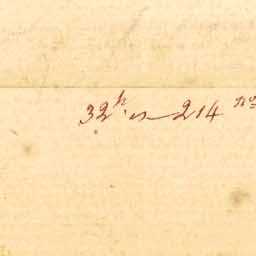 32 h. is 214 no